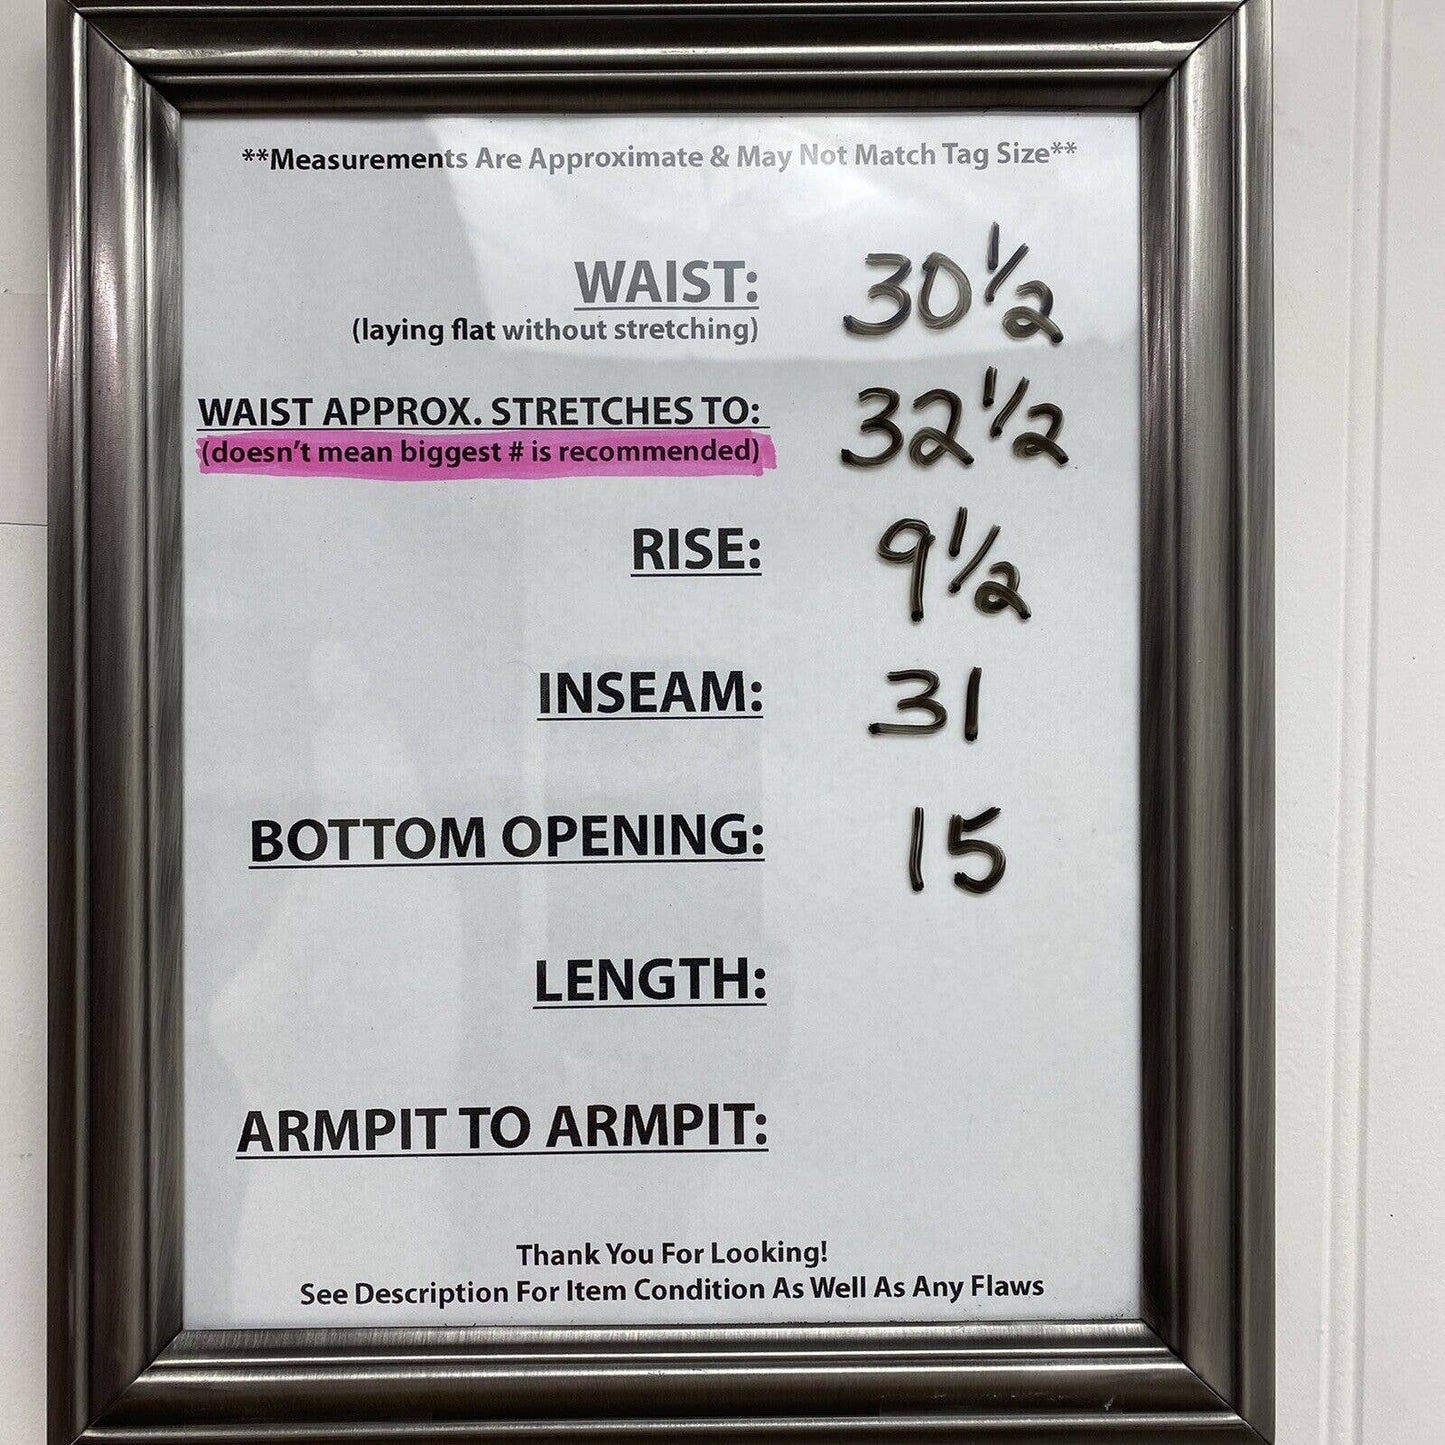 **Measurements Are Approximate & May Not Match Tag Size**
WAIST: 30 1/2
(laying flat without stretching)
WAIST APPROX. STRETCHES TO: 32 1/2
(doesn't mean biggest # is recommended)
RISE: 9 1/2
INSEAM: 31
BOTTOM OPENING: 15
LENGTH:
ARMPIT TO ARMPIT:
Thank You For Looking!
See Description For Item Condition As Well As Any Flaws